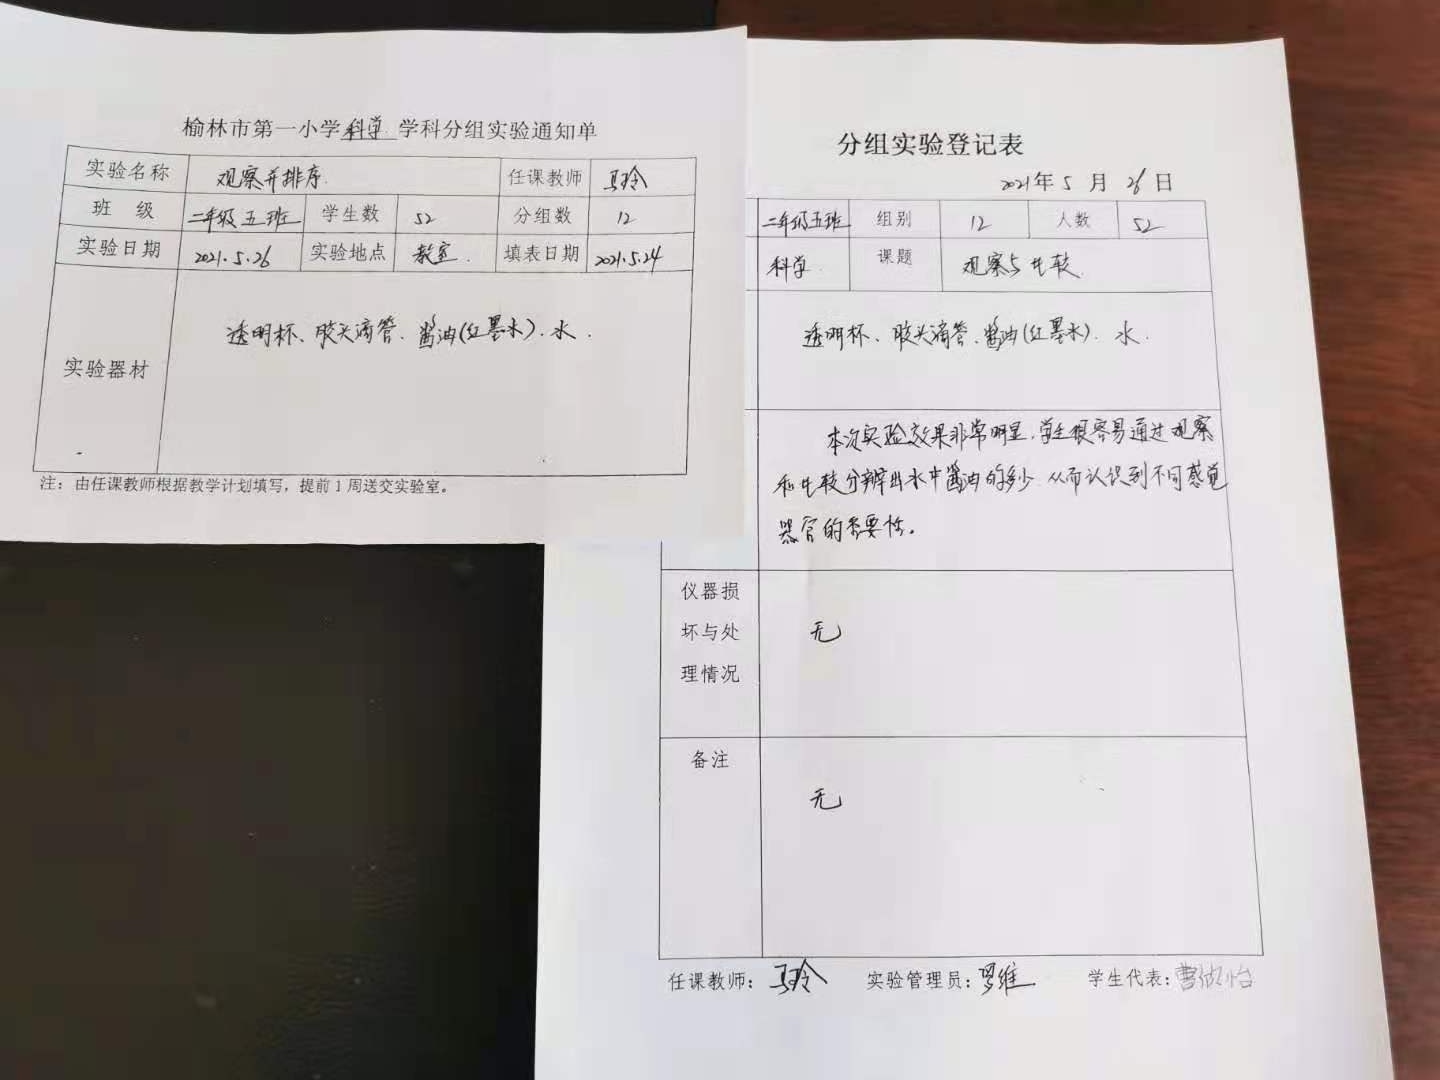 榆林市第一小学科学学科分组实验通知单
实验名称 观察并排序 任课教师 马玲
班 级 二年级五班 学生数 52 分组数 12
实验日期 2021.5.26 实验地点 教室 填表日期 2021.5.24
实验器材 透明杯、胶头滴管、酱油(红墨水)、水.
注：由任课教师根据教学计划填写，提前1周送交实验室。
分组实验登记表
2021年 5 月 26 日
二年级五班 组别 12 人数 52
科学 课题 观察与比较
透明杯、胶头滴管、酱油(红墨水)、水.
本次实验效果非常明显，学生很容易通过观察
和比较分辨出水中酱油的多少，从而认识到不同感觉
器官的重要性。
仪器损
坏与处 无
理情况
备注
无
任课教师：马玲 实验管理员：罗维 学生代表：曹怡